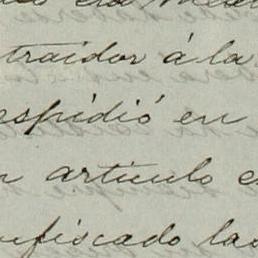 traidor á la
espidió en
artículo e
nfiscado las